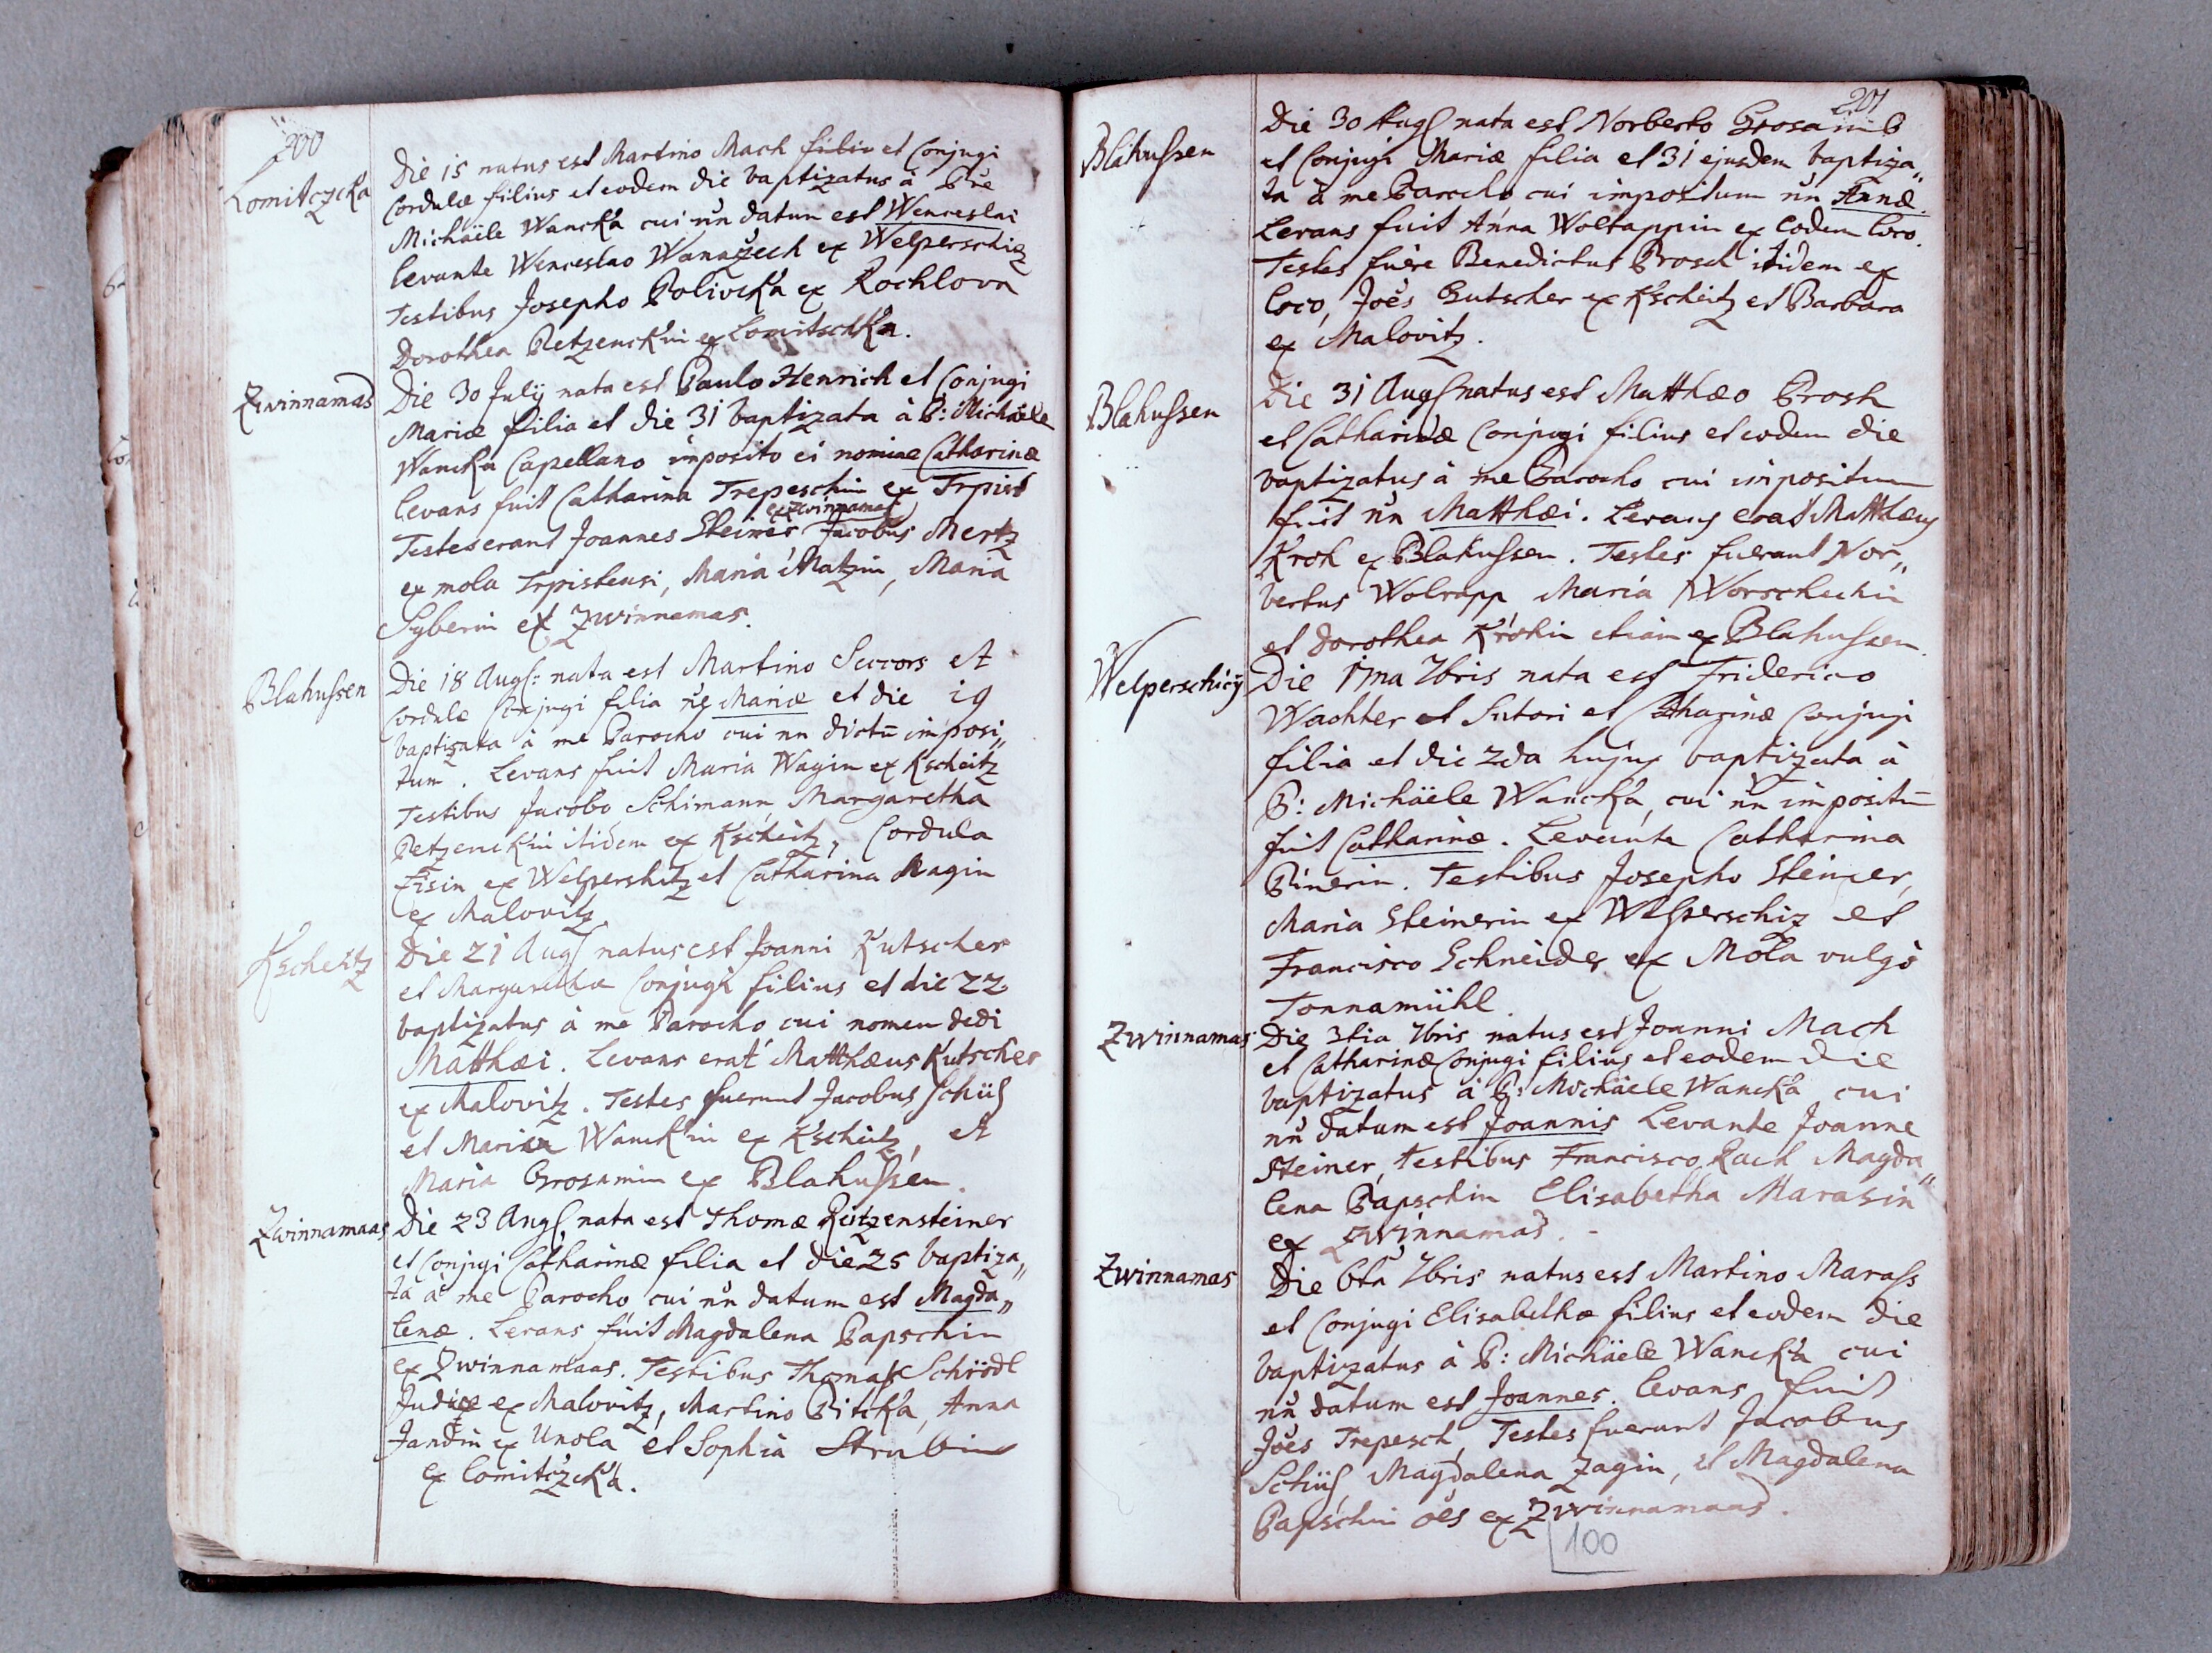 200
Lomitczcka
Die 15 natus est Martino Mach filio et Conjugi
Cordulæ filius et eodem die baptizatus à Pre
Michäele Wancka cui nñ datum est Wenceslai
levante Wenceslao Wanażech ex Welperschitz
Testibus Josepho Polivcka ex Rochlova
Dorothea Petzenckin ex Lomitschka.
Zwinnamas
Die 30 July nata est Paulo Henrich et Conjugi
Mariæ filia et die 31 baptizata à P: Michäele
Wancka Capellano imposito ei nomine Catharinæ
levans fuit Catharina Trepeschin ex Trpist
ex Zwinnamas
Testes erant Joannes Steiner Jacobus Mertz
ex mola Trpistensi, Maria Matzin, Maria
Syberin ex Zwinnamas.
Blahussen
Die 18 Augs: nata est Martino Succors et
Cordulæ Conjugi filia ñe Mariæ et die 19
baptizata à me Parocho cui nn dictũ imposi„
tum. Levans fuit Maria Wagin ex Kscheitz
Testibus Jacobo Schimann, Margaretha
Petzenckin itidem ex Kscheitz, Cordula
Fisin ex Welpershitz et Catharina Ragin
ex Malovitz.
Kscheitz
Die 21 Augs natus est Joanni Kutscher
et Margaretha Conjugi filius et die 22.
baptizatus à me Parocho cui nomen dedi
Matthæi. Levans erat Matthæus Kutscher
ex Malovitz. Testes fuerunt Jacobus Schüs
et Maria Wanckin ex Kscheitz, et
Maria Grosamin ex Blahussen.
Zwinnamaas
Die 23 Augs nata est Thomæ Ritzensteiner
et Conjugi Catharinæ filia et die 25 baptiza„
ta à me Parocho cui nñ datum est Magda„
lenæ. Levans fuit Magdalena Papschin
ex Zwinnamaas. Testibus Thomas Schrödl
Judice ex Malovitz, Martino Pitcka, Anna
Jandin ex Unola et Sophia Strabin
ex Lomitczcka.
201
Blahussen
Die 30 Augs nata est Norberto Grosamb
et Conjugi Mariæ filia et 31 ejusdem baptiza„
ta à me Parocho cui impositum nñ Annæ.
Levans fuit Anna Woltappin ex eodem loco.
Testes fuere Benedictus Prosch itidem ex
loco, Joẽs Gutscher ex Kscheitz et Barbara
ex Malovitz.
Blahussen
Die 31 Augs natus est Matthæo Prosh
et Catharinæ Conjugi filius et eodem die
baptizatus à me Parocho cui impositum
fuit nñ Matthæi. Levans erat Matthæus
Kroh ex Blahussen. Testes fuerant Nor„
bertus Wolrapp Maria Worschechin
et Dorothea Krohin etiam ex Blahussen.
Welperschicÿ
Die 1ma 7bris nata est Friderico
Wachter et Sutori et Catharinæ Conjugi
filia et die 2da hujus baptizata à
P: Michäele Wancka, cui nñ impositũ
fuit Catharinæ. Levante Catharina
Pinerin. Testibus Josepho Steiner,
Maria Steinerin ex Welperschiz et
Francisco Schneider ex Mola vulgò
Tonnamühl.
Zwinnamas
Die 3tia 7bris natus est Joanni Mach
et Catharinæ Conjugi filius et eodem die
baptizatus à P: Michäele Wancka cui
nñ datum est Joannis Levante Joanne
Steiner, testibus Francisco Rach Magda„
lena Papschin Elisabetha Marasin
ex Zwinnamas.
Zwinnamas
Die 6ta 7bris natus est Martino Marass
et Conjugi Elisabethæ filius et eodem die
baptizatus à P: Michäele Wancka cui
nñ datum est Joannes. levans fuit
Joẽs Trepesch, Testes fuerunt Jacobus
Schüs, Magdalena Zagin, et Magdalena
Papschin oẽs ex Zwinnamaas.
100